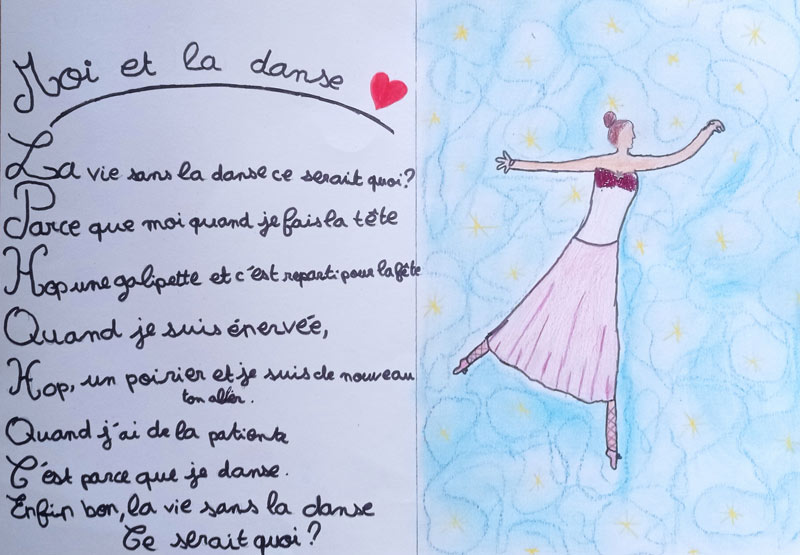 Moi et la danse
La vie sans la danse ce serait quoi?
Parce que moi quand je fais la tête
Hop une galipette et c'est reparti pour la fête
Quand je suis énervée,
Hop, un poirier et je suis de nouveau
Quand j'ai de la patiente
C'est parce que je danse.
Enfin bon, la vie sans la danse
Ce serait quoi?